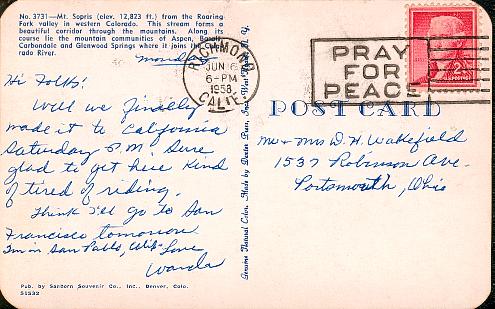 No. 3731—Mt. Sopris (elev. 12,823 ft.) from the Roaring
Fork valley in western Colorado. This stream forms a
beautiful corridor through the mountains. Along its
course lie the mountain communities of Aspen, Basalt,
Carbondale and Glenwood Springs where it joins the Colo-
rado River.
Monday
Hi Folks!
Well we finally
made it to California
Saturday P.M. Sure
glad to get here kind
of tired of riding.
Think I'll go to San
Francisco tomorrow
I'm in San Pablo, Love
Wanda
Pub. by Sanborn Souvenir Co., Inc., Denver, Colo.
S1532
Genuine Natural Color. Made by Dexter Press, Inc. West Nyack, N. Y.
RICHMOND
JUN
6-PM
1958
CALIF.
PRAY
FOR
PEACE
2¢
POST CARD
Mr & Mrs D. H. Wakefield
1537 Robinson Ave.
Portsmouth, Ohio